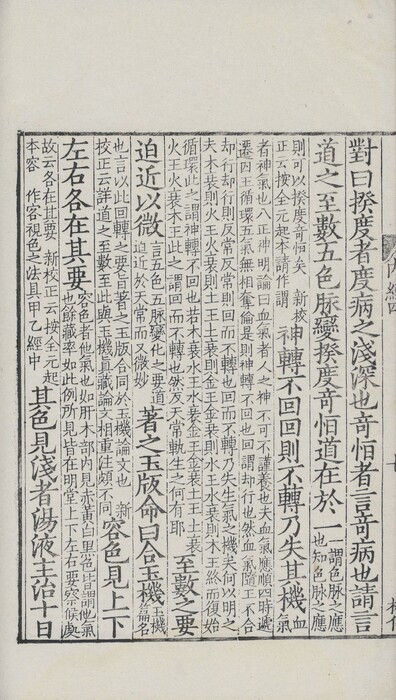 對曰揆度者度病之淺深也竒恒者言竒病也請言
道之至數五色脉變揆度竒恒道在於一
一謂色脉之應
也知色脉之應
則可以揆度竒恒矣 新校
正云按全元起本請作謂
神轉不回回則不轉乃失其機
血氣
者神氣也八正神明論曰血氣者人之神不可不謹養也夫血氣應順四時遞
遷囚王循環五氣無相奪倫是則神轉不回也回謂却行也然血氣隨王不合
却行却行則反常反常則回而不轉也回而不轉乃失生氣之機矣何以明之
夫木衰則火王火衰則土王土衰則金王金衰則水王水衰則木王終而復始
循環此之謂神轉不回也若木衰水王水衰金王金衰土王土衰
火王火衰木王此之謂回而不轉也然反天常軌生之何有耶
至數之要
迫近以微
言五色五脉變化之要道
迫近於天常而又微妙
著之玉版命曰合玉機
玉機
篇名
也言以此回轉之要旨著之玉版合同於玉機論文也 新
校正云詳道之至數至此與玉機真藏論文相重注頗不同
容色見上下
左右各在其要
容色者他氣也如肝木部内見赤黄白黑色皆謂他氣
也餘藏率如此例所見皆在明堂上下左右要察候處
故云各在其要 新校正云按全元起
本容作客視色之法具甲乙經中
其色見淺者湯液主治十日